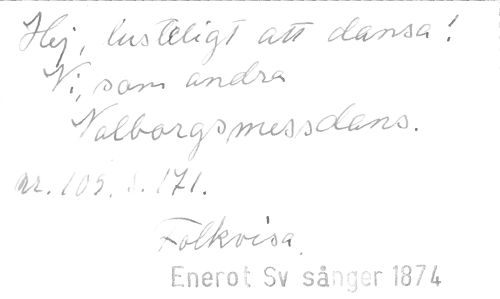 Hej, lusteligt att dansa!
Vi, som andra
Valborgsmessdans.
nr. 109, s. 171.
Folkvisa.
Enerot Sv sånger 1874